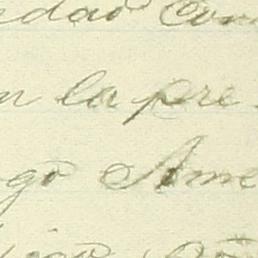 edad con
n la pre
go Ame